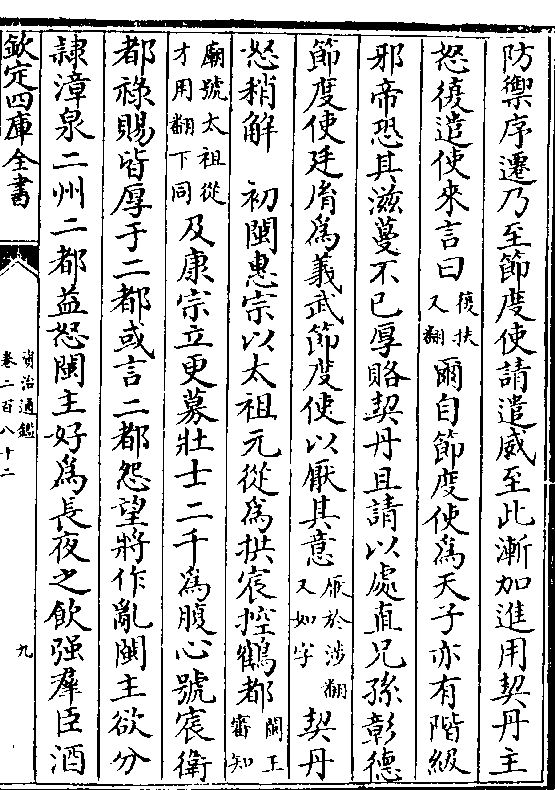 防禦序遷乃至節度使請遣威至此漸加進用契丹主
怒復遣使來言曰復扶又翻爾自節度使為天子亦有階級
邪帝恐其滋蔓不已厚賂契丹且請以處直兄孫彰德
節度使廷𦙍為義武節度使以厭其意厭於涉翻又如字契丹
怒稍解　初閩惠宗以太祖元從為拱宸控鶴都閩王審知
廟號太祖從才用翻下同及康宗立更募壯士二千為腹心號宸衛
都祿賜皆厚于二都或言二都怨望將作亂閩主欲分
隸漳泉二州二都益怒閩主好為長夜之飲强羣臣酒
欽定四庫全書
資治通鑑
卷二百八十二
九